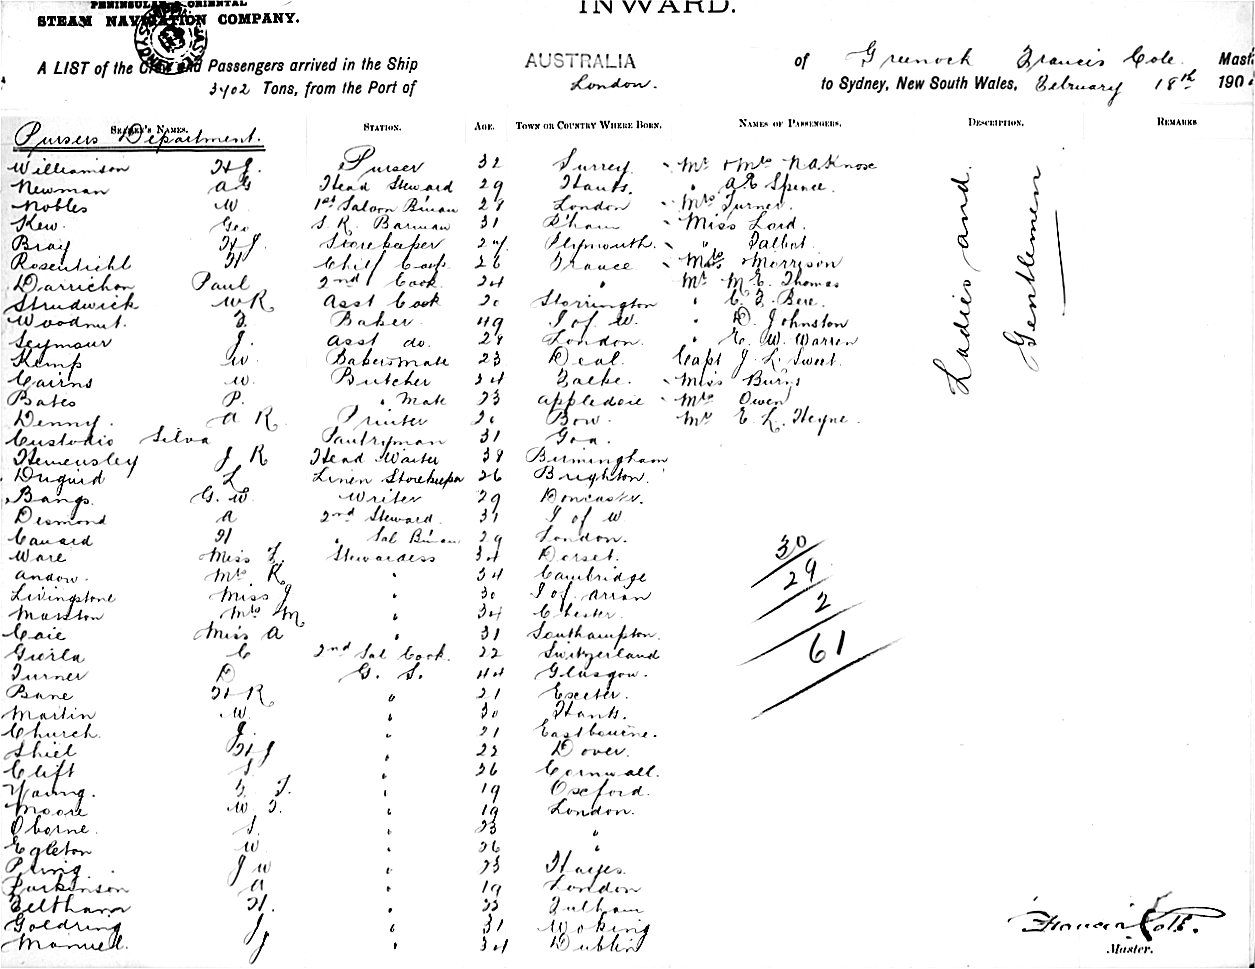 PENINSULAR & ORIENTAL
STEAM NAVIGATION COMPANY.
INWARD.
A LIST of the Crew and Passengers arrived in the Ship AUSTRALIA of Greenock Francis Cole Mast
3402 Tons, from the Port of London. to Sydney, New South Wales, February 18th 190
SEAMEN'S NAMES. STATION. AGE. TOWN OR COUNTRY WHERE BORN. NAMES OF PASSENGERS. DESCRIPTION. REMARKS
Pursers Department.
Williamson H J. Purser 32 Surrey Mr & Mrs N A Knox
Newman A G Head Steward 29 Hants. " A E Spence.
Nobles W. 1st Saloon B'man 28 London Mrs Turner.
Kew. Geo S. R. Barman 31 B'ham Miss Lord.
Bray H J. Storekeeper 24 Plymouth. " Talbot.
Rosentiehl H Chief Cook 26 France Mrs Morrison
Darrichon Paul 2nd Cook 24 " Mr M. E. Thomas
Strudwick W R Asst Cook 20 Storrington " C. F. Bere.
Woodnut. F. Baker. 49 I of W. " D. Johnston
Seymour J. Asst do. 28 London. " E. W. Warren
Kemp W. Bakersmate 23 Deal. Capt J. L. Sweet.
Cairns W. Butcher 24 Miss Burns
Bates P. " Mate 23 Appledore Mrs Owen
Denny. A R. Printer 20 Bow. Mr E. L. Heyne.
Custodio Silva Pantryman 31 Goa.
Hemensley J R Head Waiter 38 Birmingham
Duguid L Linen Storekeeper 26 Brighton.
Bangs. G. W. Writer 29 Doncaster.
Desmond A 2nd Steward. 31 I of W
H " Sal B'man 29 London.
Ware Miss F. Stewardess 34 Dorset.
Andow. Mrs K " 34 Cambridge
Livingstone Miss J " 30 I of Arran
Marston Mrs M " 34 Chester.
Caie Miss A " 31 Southampton.
C 2nd Sal Cook. 22 Switzerland
Turner D G. S. 44 Glasgow.
Bane H R " 21 Exeter.
Martin W. " 30 Hants.
Church. J. " 21 Eastbourne.
Shiel H J " 22 Dover.
Clift S " 26 Cornwall.
Young. F. " 19 Oxford.
Moore W. F. " 19 London.
Oborne. S. " 23 "
Egleton W. " 26 "
J W " 23 Hayes.
Parkinson A " 19 London
Feltham H. " 22 Fulham
Goldring J " 31 Woking
Manuel. J " 34 Dublin
Ladies and
Gentlemen
30
29
2
61
Francis Cole.
Master.